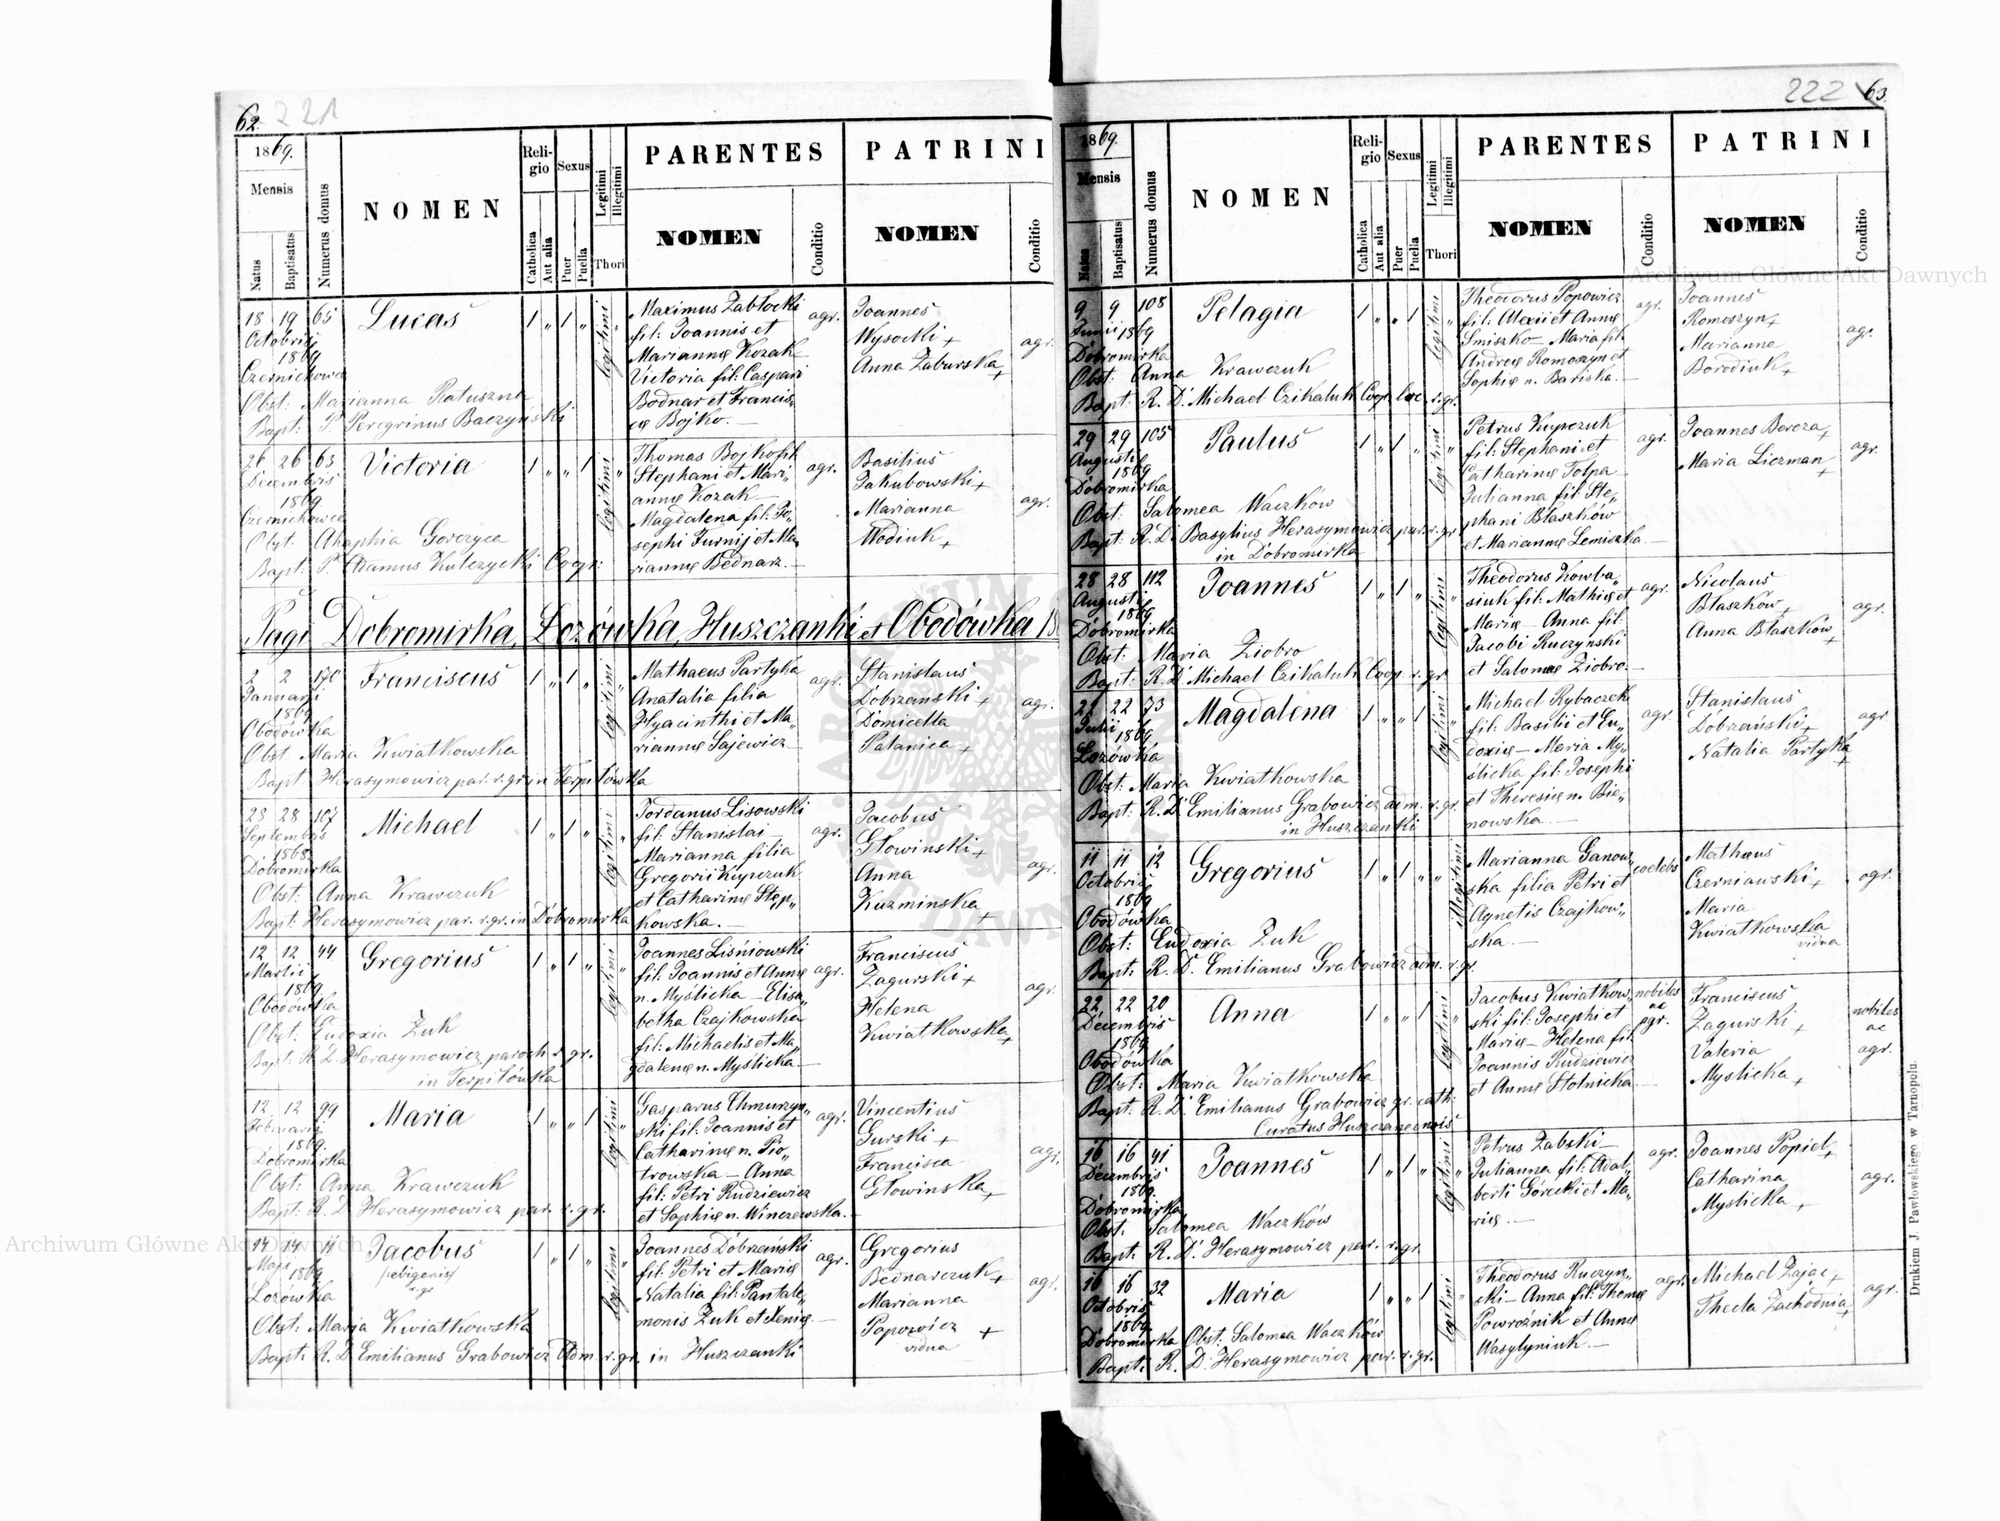 62. 221
1869.
Mensis
Natus
Baptisatus
Numerus domus
NOMEN
Religio
Catholica
Aut alia
Sexus
Puer
Puella
Legitimi
Illegitimi
Thori
PARENTES
NOMEN
Conditio
PATRINI
NOMEN
Conditio
18 19 65 Lucas 1 „ 1 „ legitimi „
Octobris
1869
Czernichowce
Obst: Marianna Ratuszna
Bapt: P. Peregrinus Baczyński
Maximus Zabłocki
fil: Joannis et
Mariannę Kozak
Victoria fil: Caspari
Bodnar et Francis,
cę Bojko.—
agr.
Joannes
Wysocki +
Anna Zaburska +
agr.
26 26 63 Victoria 1 „ „ 1 legitimi „
Decembris
1869
Czernichowce
Obst. Ahaphia Gorczyca
Bapt: P. Adamus Kulczycki Coop:
Thomas Bojko fil.
Stephani et Mari,,
annę Kozak—
Magdalena fil: Jo,
sephi Furnij et Ma,
riannę Bednarz.—
agr.
Basilius
Jakubowski +
Marianna
Wodiuk +
agr.
Pagi Dobromirka, Łozówka, Huszczanki et Obodówka 18
2 2 170 Franciscus 1 „ 1 „ legitimi „
Januarii
1869
Obodówka
Obst. Maria Kwiatkowska
Bapt. Herasymowicz par. r. gr. in Terpiłówka
Mathaeus Partyka
Anatalia filia
Hyacinthi et Ma,
riannę Sajewicz
agr.
Stanislaus
Dobrzanski +
Domicella
Patanica +
agr.
28 28 107 Michael 1 „ 1 „ legitimi „
Septembris
1868
Dobromirka
Obst: Anna Krawczuk
Bapt: Herasymowicz par. r. gr. in Dobromirka
Jordanus Lisowski
fil: Stanislai
Marianna filia
Gregorii Kupczuk
et Catharinę Step,,
kowska.—
agr.
Jacobus
Głowinski +
Anna
Kuzminska +
agr.
12 12 44 Gregorius 1 „ 1 „ legitimi „
Martii
1869
Obodówka
Obst: Eudoxia Zuk
Bapt: R. D. Herasymowicz paroch r. gr.
in Terpiłówka
Joannes Liśniowski
fil: Joannis et Annę
n. Myślicka — Elisa,
betha Czajkowska
fil: Michaelis et Ma,
gdalenę n. Myślicka.—
agr.
Franciscus
Zagurski +
Helena
Kwiatkowska +
agr.
12 12 99 Maria 1 „ „ 1 legitimi „
Februarii
1869.
Dobromirka
Obst: Anna Krawczuk
Bapt: R. D. Herasymowicz par. r. gr.
Gasparus Chmurzyn,,
ski fil: Joannis et
Catharinę n. Pio,
trowska — Anna
fil: Petri Rudziewicz
et Sophię n. Winczewska.
agr.
Vincentius
Gurski +
Francisca
Głowinska +
agr.
14 14 11 Jacobus 1 „ 1 „ legitimi „
Maji
1869
Łozowka
Obst: Maria Kwiatkowska
Bapt: R. D. Emilianus Grabowicz Adm. r. gr. in Huszczanki
Joannes Dobrzański
fil: Petri et Marię
Natalia fil: Pantale,
monis Zuk et Xenię.—
agr.
Gregorius
Bednarczuk +
Marianna
Popowicz +
vidua
agr.
222 63
1869.
Mensis
Natus
Baptisatus
Numerus domus
NOMEN
Religio
Catholica
Aut alia
Sexus
Puer
Puella
Legitimi
Illegitimi
Thori
PARENTES
NOMEN
Conditio
PATRINI
NOMEN
Conditio
9 9 108 Pelagia 1 „ „ 1 legitimi „
Junii 1869
Dobromirka
Obst: Anna Krawczuk
Bapt: R. D. Michael Czikaluk Coop. loc. r. gr.
Theodorus Popowicz
fil: Alexii et Annę
Smiszko — Maria fil.
Andreę Romoszyn et
Sophię n. Bariska.—
agr.
Joannes
Romoszyn +
Marianna
Borodiuk +
agr.
29 29 105 Paulus 1 „ 1 „ legitimi „
Augusti
1869
Dobromirka
Obst. Salomea Waczków
Bapt: R. D. Basylius Herasymowicz par. r. gr.
in Dobromirka
Petrus Kupczuk
fil: Stephani et
Catharinę Tołpa
Julianna fil: Ste,
phani Błaszków
et Mariannę Lemiszka.—
agr.
Joannes Bereza +
Maria Liczman +
agr.
28 28 112 Joannes 1 „ 1 „ legitimi „
Augusti
1869
Dobromirka
Obst: Maria Ziobro
Bapt: R. D. Michael Czikaluk Coop. r. gr.
Theodorus Kowba,
siuk fil: Mathię et
Marię — Anna fil:
Jacobi Ruczynski
et Salomeę Ziobro.—
agr.
Nicolaus
Błaszków +
Anna Błaszków +
agr.
22 22 73 Magdalena 1 „ „ 1 legitimi „
Julii
1869
Łozówka
Obst: Maria Kwiatkowska
Bapt: R. D. Emilianus Grabowicz adm. r. gr.
in Huszczanki
Michael Rybaczek
fil: Basilii et Eu,
doxię — Maria My,
slicka fil: Josephi
et Theresię n. Bie,
nowska.—
agr.
Stanislaus
Dobrzański +
Natalia Partyka +
agr
11 11 12 Gregorius 1 „ 1 „ „ illegitimi
Octobris
1869
Obodówka
Obst: Eudoxia Zuk
Bapt: R. D. Emilianus Grabowicz adm. r. gr.
Marianna Ganow,,
ska filia Petri et
Agnetis Czajkow,,
ska.—
coelebs
Matheus
Czerniawski +
Maria
Kwiatkowska
vidua
agr.
22 22 20 Anna 1 „ „ 1 legitimi „
Decembris
1869
Obodówka
Obst: Maria Kwiatkowska
Bapt: R. D. Emilianus Grabowicz gr. cath.
Curatus Huszczanecensis
Jacobus Kwiatkow,
ski fil: Josephi et
Marię — Helena fil:
Joannis Rudziewicz
et Annę Stolnicka.—
nobiles
ac
agr.
Franciscus
Zagurski +
Valeria
Myslicka +
nobiles
ac
agr.
16 16 41 Joannes 1 „ 1 „ legitimi „
Decembris
1869.
Dobromirka
Obst. Salomea Waczków
Bapt: R. D. Herasymowicz par. r. gr.
Petrus Zabski—
Julianna fil: Adal,
berti Górecki et Ma,
rię.—
agr.
Joannes Popiel +
Catharina
Myslicka +
agr.
16 16 32 Maria 1 „ „ 1 legitimi „
Octobris
1869
Dobromirka Obst: Salomea Waczków
Bapt: R. D. Herasymowicz par. r. gr.
Theodorus Ruczyn,,
ski — Anna fil: Thomę
Powroźnik et Annę
Wasylyniuk.—
agr.
Michael Zając +
Thecla Zachodnia +
agr.
Drukiem J. Pawłowskiego w Tarnopolu.
Archiwum Główne Akt Dawnych
Archiwum Główne Akt Dawnych